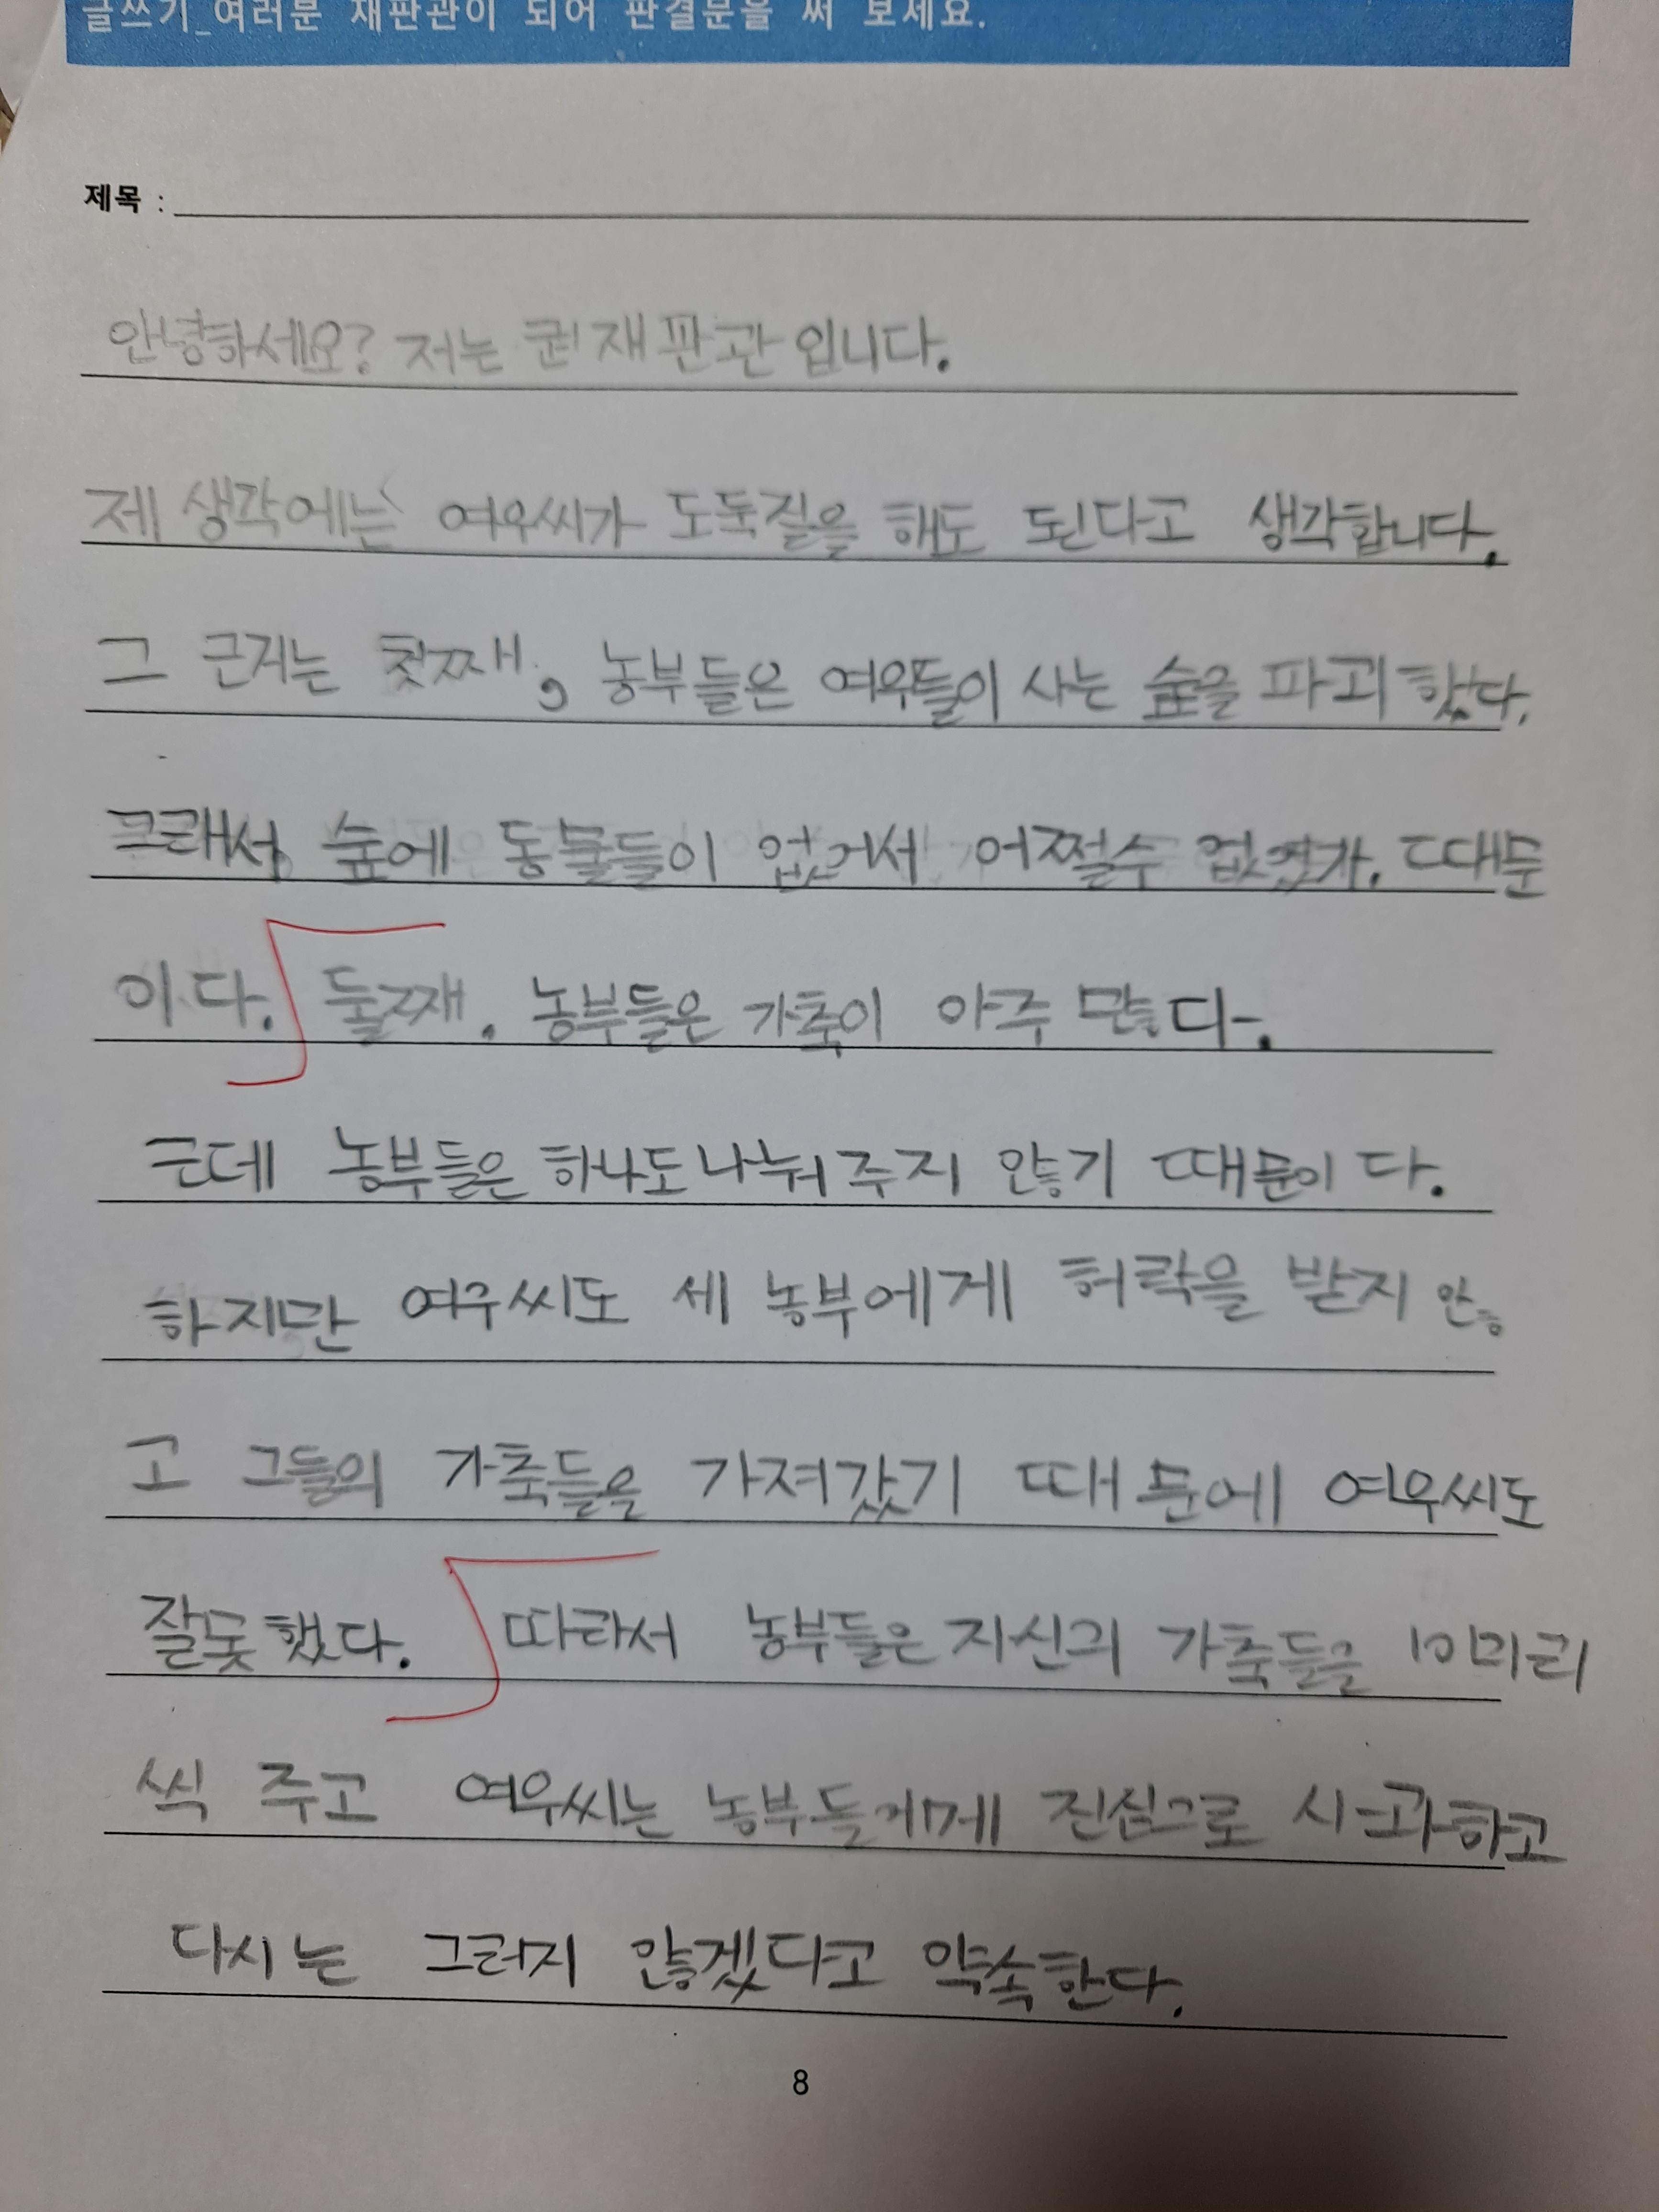 글쓰기_여러분 재판관이 되어 판결문을 써 보세요.
제목 :
안녕하세요? 저는 권재판관입니다.
제 생각에는 여우씨가 도둑질을 해도 된다고 생각합니다.
그 근거는 첫째, 농부들은 여우들이 사는 숲을 파괴했다.
그래서 숲에 동물들이 없어서 어쩔수 때문
이다. 둘째. 농부들은 가축이 아주 많다.
근데 농부들은 하나도 나눠주지 않기 때문이다.
하지만 여우씨도 세 농부에게 허락을 받지 않
고 그들의 가축들을 가져갔기 때문에 여우씨도
잘못했다. 따라서 농부들은 자신의 가축들을 10마리
씩 주고 여우씨는 농부들에게 진심으로 사과하고
다시는 그러지 않겠다고 약속한다.
8